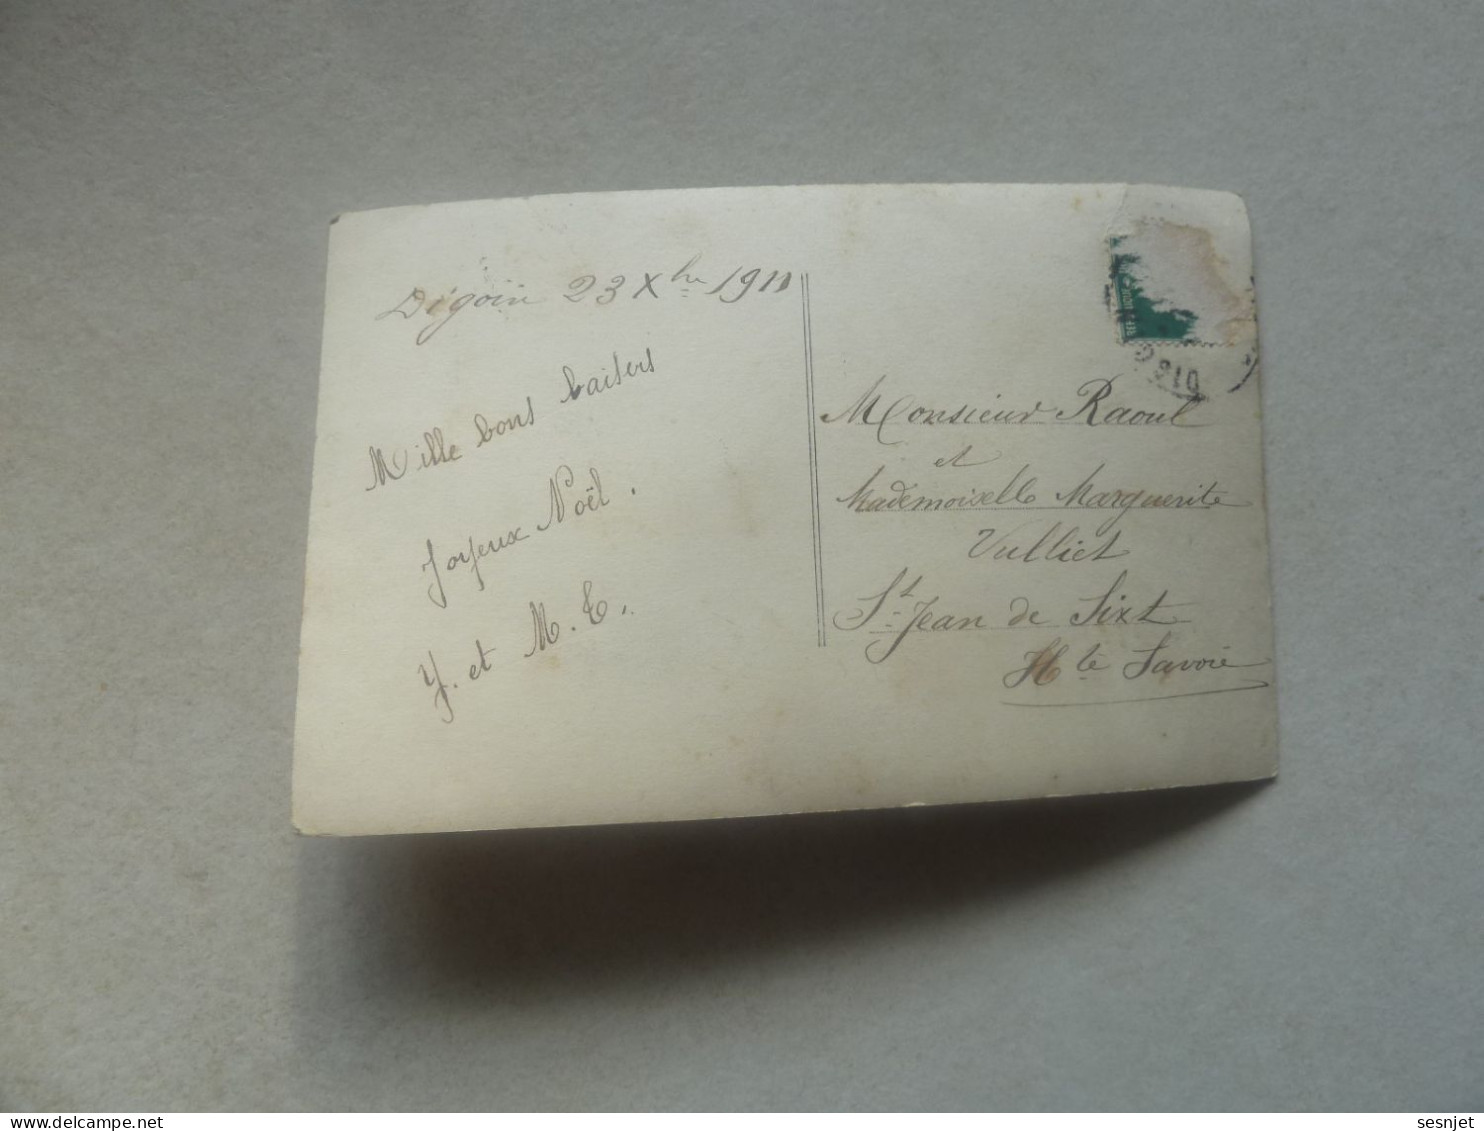 Digoin 23 Xbre 1911
Mille bons baisers
Joyeux Noël.
Y. et M. T.
Monsieur Raoul
et
Mademoiselle Marguerite
Vulliet
St Jean de Sixt
Hte Savoie
DIGO
sesnjet